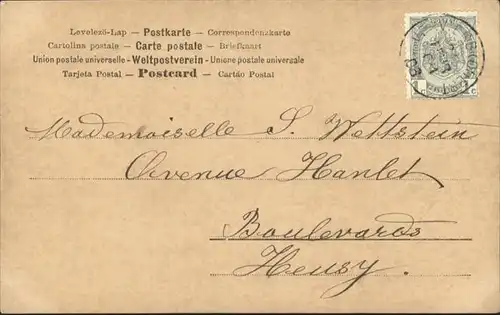 Levelező-Lap — Postkarte — Correspondenzkarte
Cartolina postale — Carte postale — Briefkaart
Union postale universelle — Weltpostverein — Unione postale universale
Tarjeta Postal — Postcard — Cartão Postal
Mademoiselle S. Wettstein
Avenue Hanlet
Boulevards
Heusy.